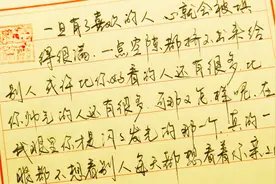 一旦有了喜欢的人 心就会被填
得很满 一点空隙都持不出来给
别人 或许比你好看的人还有很多 比
你帅气的人还有很多 可那又怎样呢 在
我眼里你才是闪闪发光的那一个 真的一
眼都不想看别人 每天都想看着你